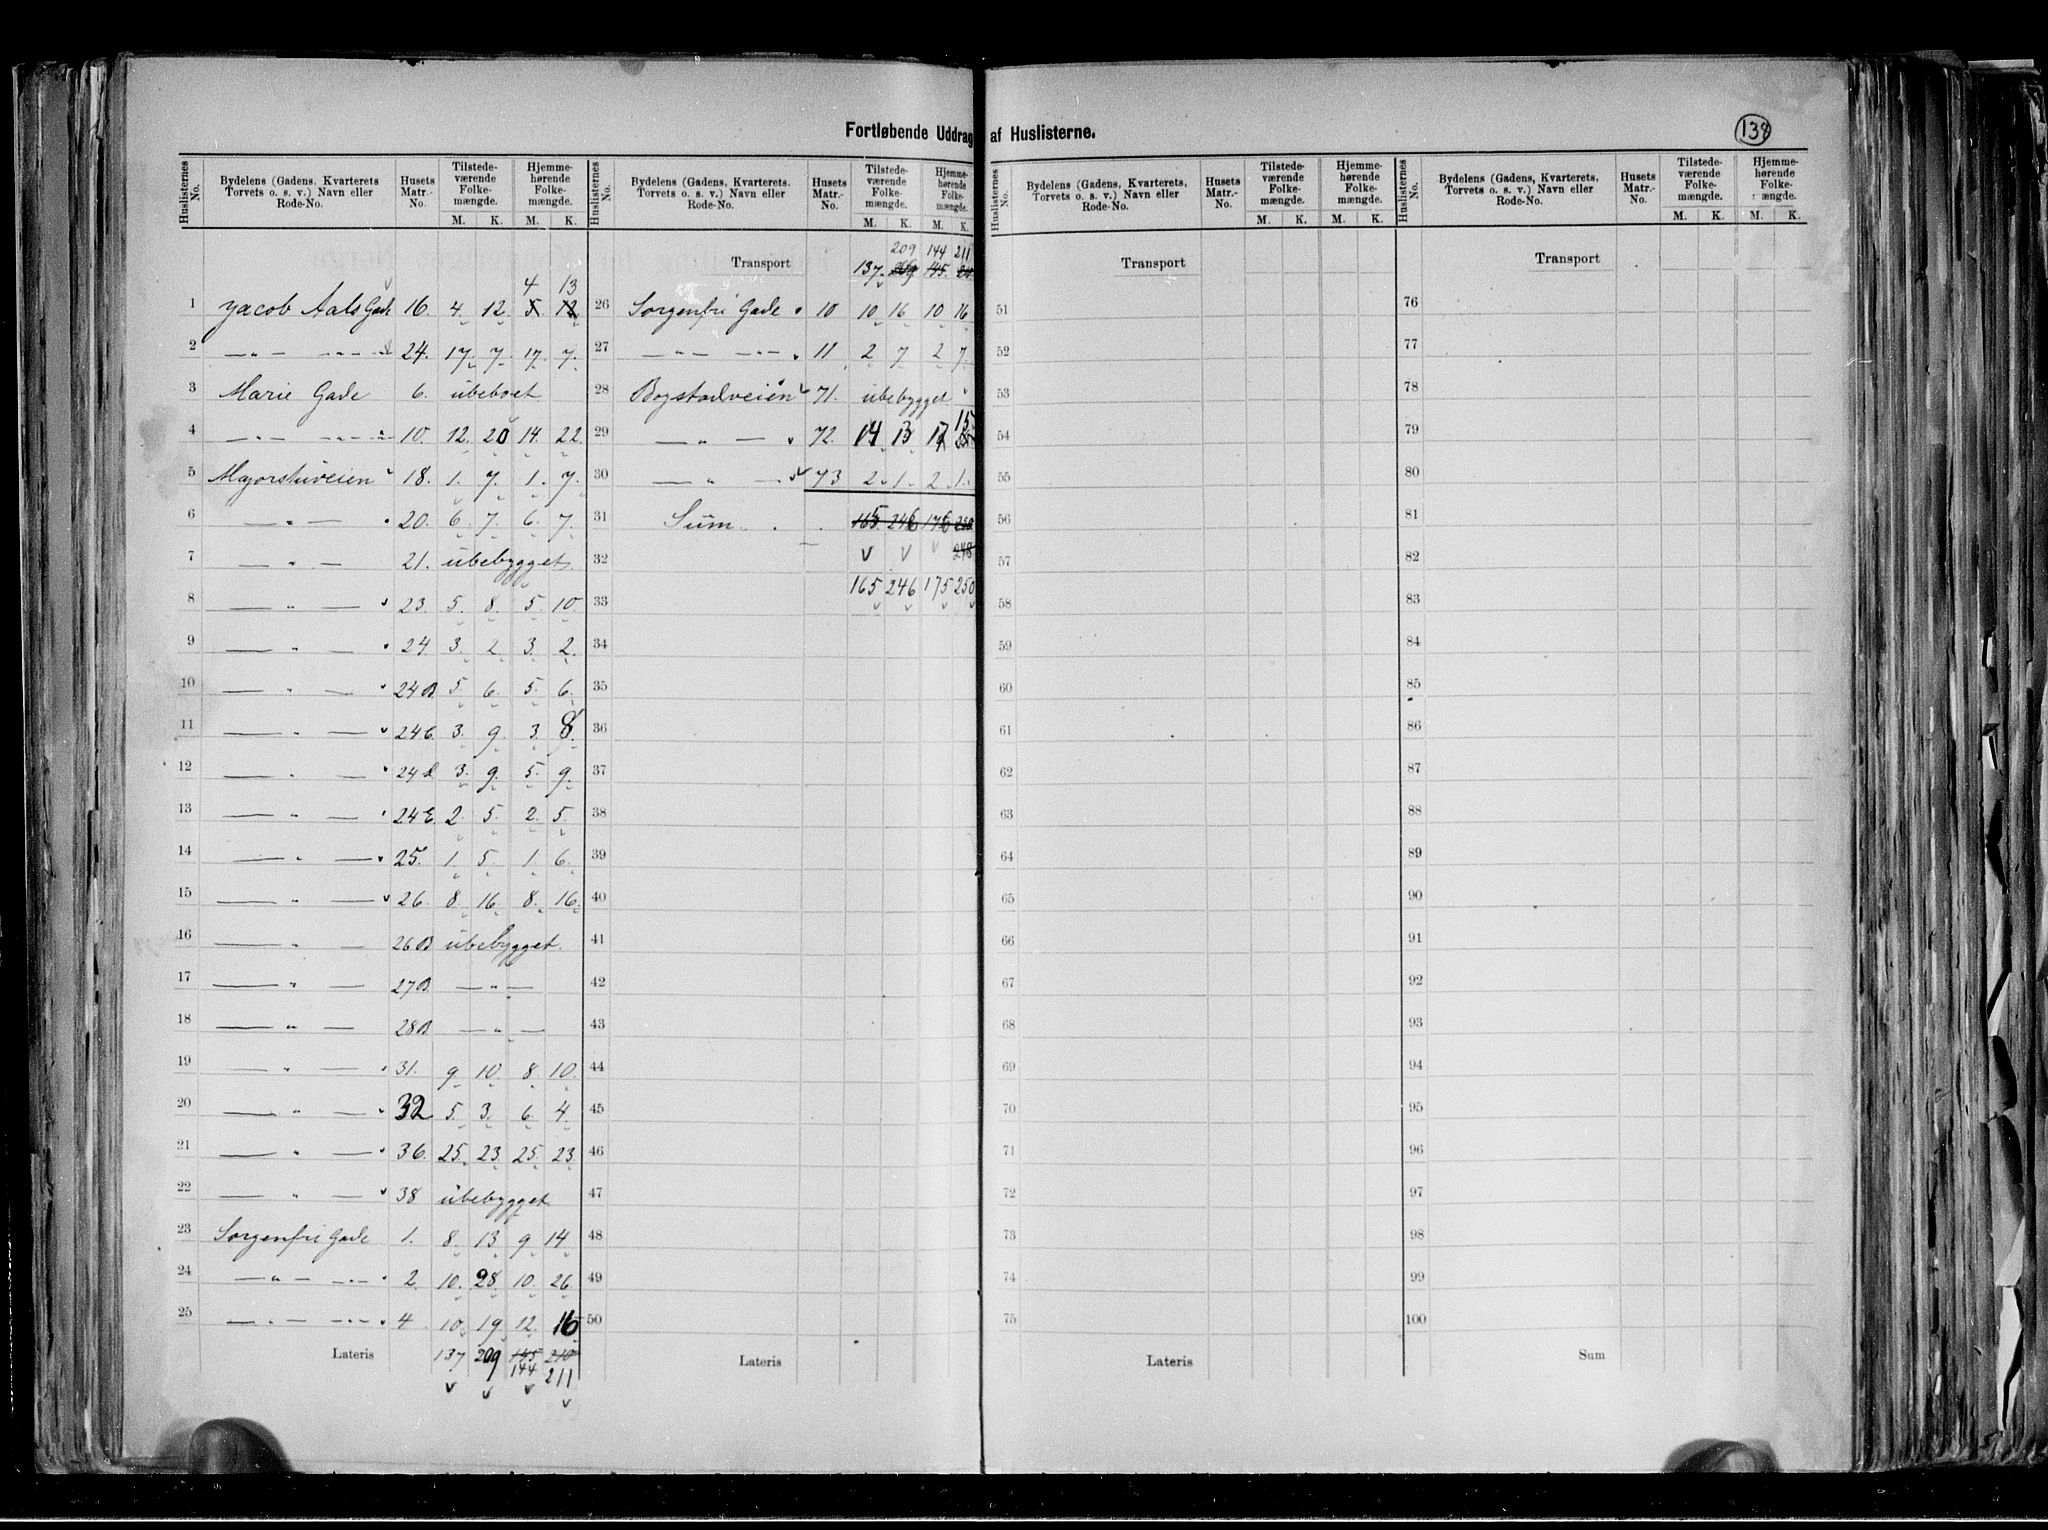 Fortløbende Uddrag af Huslisterne.
138
Huslisternes No. | Bydelens (Gadens, Kvarterets Torvets o. s. v.) Navn eller Rode-No. | Husets Matr.-No. | Tilstedeværende Folkemængde. M. K. | Hjemmehørende Folkemængde. M. K.
4 13
1 Jacob Aals Gade 16. 4. 12. 5 12
2 — " — — " — 24. 17. 7. 17. 7.
3 Marie Gade 6. ubeboet
4 — " — — " — 10. 12. 20 14. 22.
5 Majorstuveien 18. 1. 7. 1. 7.
6 — " — 20. 6. 7. 6. 7.
7 — " — 21. ubebygget.
8 — " — 23. 5. 8. 5. 10.
9 — " — 24. 3. 2. 3. 2.
10 — " — 24B. 5. 6. 5. 6.
11 — " — 24C. 3. 9. 3. 8.
12 — " — 24d. 3. 9. 5. 9.
13 — " — 24E. 2. 5. 2. 5.
14 — " — 25. 1. 5. 1. 6.
15 — " — 26. 8. 16. 8. 16.
16 — " — 26B ubebygget.
17 — " — 27B. — " —
18 — " — 28B. — " —
19 — " — 31. 9. 10. 8. 10.
20 — " — 32 5. 3. 6. 4.
21 — " — 36. 25. 23. 25. 23.
22 — " — 38 ubebygget
23 Sorgenfri Gade 1. 8. 13. 9. 14.
24 — " — — " — 2. 10. 28. 10. 26.
25 — " — — " — 4. 10. 19. 12. 16
Lateris 137 209 145 210
144 211
Huslisternes No. | Bydelens (Gadens, Kvarterets. Torvets o. s. v.) Navn eller Rode-No. | Husets Matr.-No. | Tilstedeværende Folkemængde. M. K. | Hjemmehørende Folkemængde. M. K.
209 144 211
Transport 137. 145.
26 Sorgenfri Gade 10 10 16 10 16
27 — " — — " — 11. 2 7 2 7.
28 Bogstadveien 71. ubebygget
15
29 — " — 72. 14 13
30 — " — 73 2. 1. 2. 1.
31 Sum 165. 246 176 250
32 248
165 246 175 250
33
34
35
36
37
38
39
40
41
42
43
44
45
46
47
48
49
50
Lateris
Huslisternes No. | Bydelens (Gadens, Kvarterets, Torvets o. s. v.) Navn eller Rode-No. | Husets Matr.-No. | Tilstedeværende Folkemængde. M. K. | Hjemmehørende Folkemængde. M. K.
Transport
51
52
53
54
55
56
57
58
59
60
61
62
63
64
65
66
67
68
69
70
71
72
73
74
75
Lateris
Huslisternes No. | Bydelens (Gadens, Kvarterets, Torvets o. s. v.) Navn eller Rode-No. | Husets Matr.-No. | Tilstedeværende Folkemængde. M. K. | Hjemmehørende Folkemængde. M. K.
Transport
76
77
78
79
80
81
82
83
84
85
86
87
88
89
90
91
92
93
94
95
96
97
98
99
100
Sum